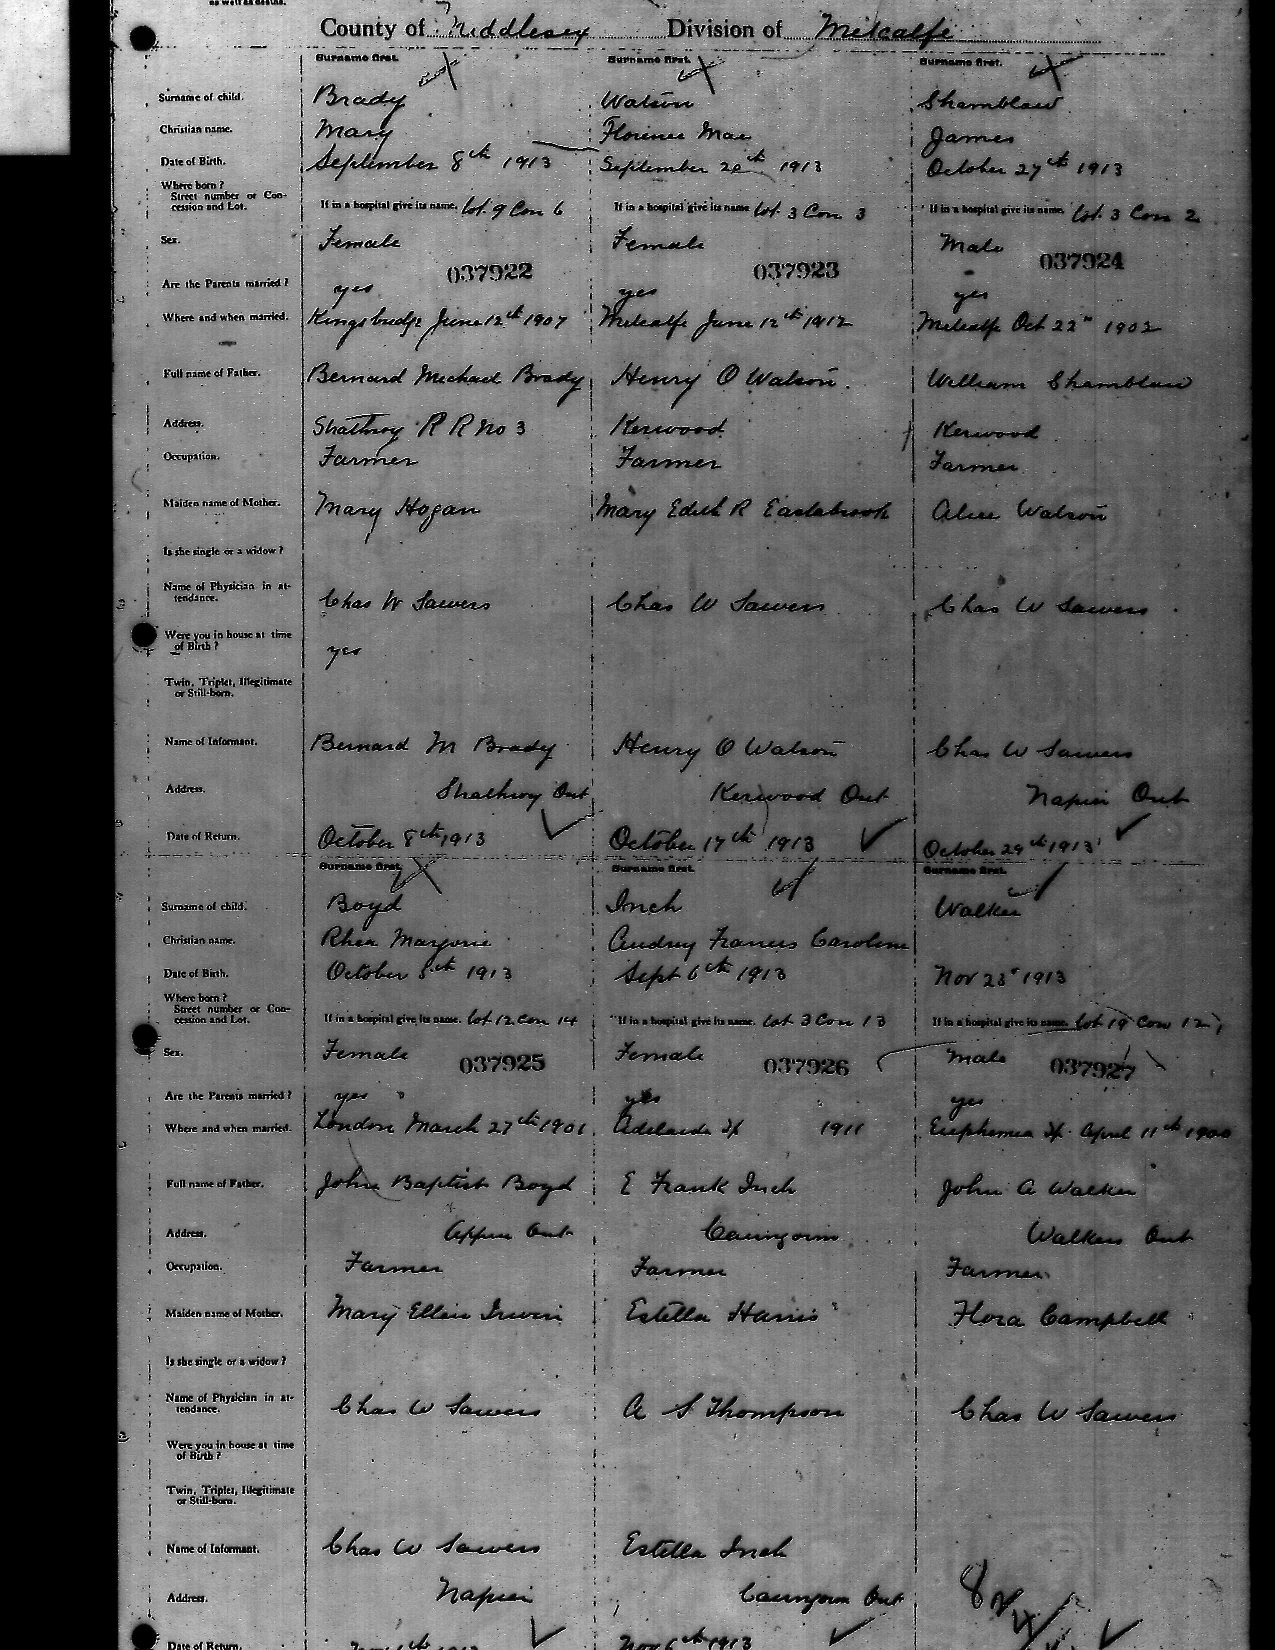 as well as deaths.
County of Middlesex Division of Metcalfe
Surname first. Surname first. Surname first.
Surname of child. Brady Watson Shamblaw
Christian name. Mary Florence Mae James
Date of Birth. September 8th 1913 September 20th 1913 October 27th 1913
Where born?
Street number or Con-
cession and Lot. If in a hospital give its name. Lot 9 Con 6 If in a hospital give its name Lot 3 Con 3 If in a hospital give its name. Lot 3 Con 2
Sex. Female Female Male
037922 037923 037924
Are the Parents married? yes yes yes
Where and when married. Kingsbridge June 12th 1907 Metcalfe June 12th 1912 Metcalfe Oct 22n 1902
Full name of Father. Bernard Michael Brady Henry O Watson. William Shamblaw
Address. Strathroy R R No 3 Kerwood Kerwood
Occupation. Farmer Farmer Farmer
Maiden name of Mother. Mary Hogan Mary Edith R Eastabrook Alice Watson
Is she single or a widow?
Name of Physician in at-
tendance. Chas W Sawers Chas W Sawers Chas W Sawers
Were you in house at time
of Birth? yes
Twin, Triplet, Illegitimate
or Still-born.
Name of Informant. Bernard M Brady Henry O Watson Chas W Sawers
Address. Strathroy Ont Kerwood Ont Napier Ont
Date of Return. October 8th 1913 October 17th 1913 October 29th 1913
Surname first. Surname first. Surname first.
Surname of child. Boyd Inch Walker
Christian name. Rhea Marjorie Audrey Frances Caroline
Date of Birth. October 5th 1913 Sept 6th 1913 Nov 23r 1913
Where born?
Street number or Con-
cession and Lot. If in a hospital give its name. Lot 12 Con 14 If in a hospital give its name. Lot 3 Con 13 If in a hospital give its name. Lot 19 Con 12
Sex. Female Female Male
037925 037926 037927
Are the Parents married? yes yes yes
Where and when married. London March 27th 1901 Adelaide Tp 1911 Euphemia Tp. April 11th 1900
Full name of Father. John Baptist Boyd E Frank Inch John A Walker
Address. Appin Ont Cairngorm Walkers Ont
Occupation. Farmer Farmer Farmer
Maiden name of Mother. Mary Ellen Irwin Estella Harris Flora Campbell
Is she single or a widow?
Name of Physician in at-
tendance. Chas W Sawers A S Thompson Chas W Sawers
Were you in house at time
of Birth?
Twin, Triplet, Illegitimate
or Still-born.
Name of Informant. Chas W Sawers Estella Inch
Address. Napier Cairngorm Ont
Date of Return. Nov 6th 1913